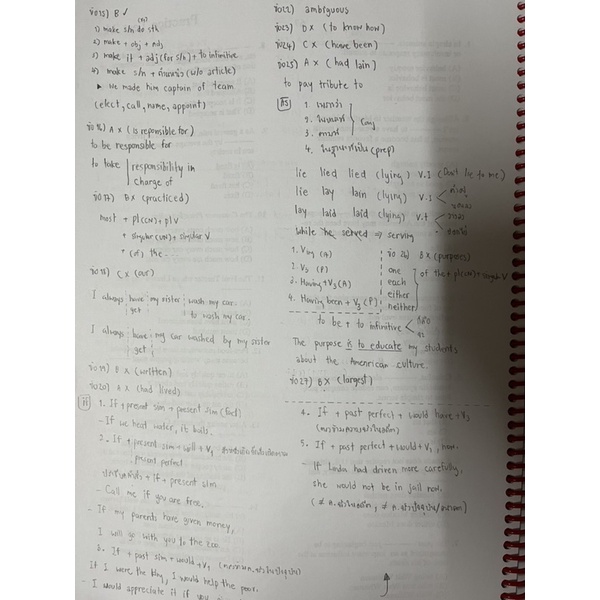 ข้อ15) B ✓
1) make s/n do sth
2) make + obj + adj
3) make it + adj (for s/n) + to infinitive
4) make s/n + ตำแหน่ง (w/o article)
▸ We made him captain of team
(elect, call, name, appoint)
ข้อ16) A × (is reponsible for)
to be responsible for
to take responsibility in
charge of
ข้อ17) B× (practiced)
most + pl(CN) + pl V
+ singular (UN) + singular V
+ (of) the ...
ข้อ18) C × (our)
I always have my sister wash my car.
get to wash my car.
I always have my car washed by my sister
get
ข้อ19) B × (written)
ข้อ20) A × (had lived)
1. If + present sim + present sim (fact)
- If we heat water, it boils.
2. If + present sim + will + V1
present perfect
+ if + present sim
- Call me if you are free.
- If my parents have given money,
I will go with you to the zoo.
3. If + past sim + would + V1
If I were the king, I would help the poor.
- I would appreciate it if you
ข้อ22) ambiguous
ข้อ23) D × (to know how)
ข้อ24) C × (have been)
ข้อ25) A × (had lain)
to pay tribute to
1.
2.
3.
4. (prep)
lie lied lied (lying) V.I (Don't lie to me)
lie lay lain (lying) V.I
lay laid laid (lying) V.t
while he served ⇒ serving
1. Ving (A)
2. V3 (P)
3. Having + V3 (A)
4. Having been + V3 (P)
ข้อ 26) B × (purposes)
one
each
either
neither
of the + pl(CN) + singular V
to be + to infinitive
The purpose is to educate my students
about the Amenrican culture.
ข้อ27) B× (largest)
4. If + past perfect + would have + V3
5. If + past perfect + would + V1, now.
- If Linda had driven more carefully,
she would not be in jail now.